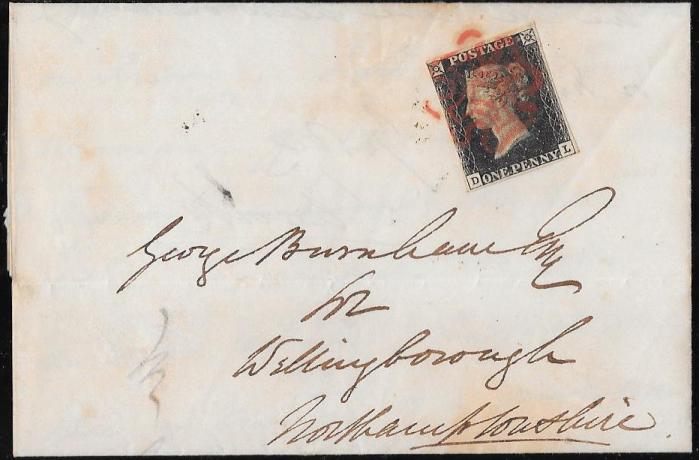 POSTAGE
D ONE PENNY L
George Burnham Esq
Sol
Wellingborough
Northamptonshire